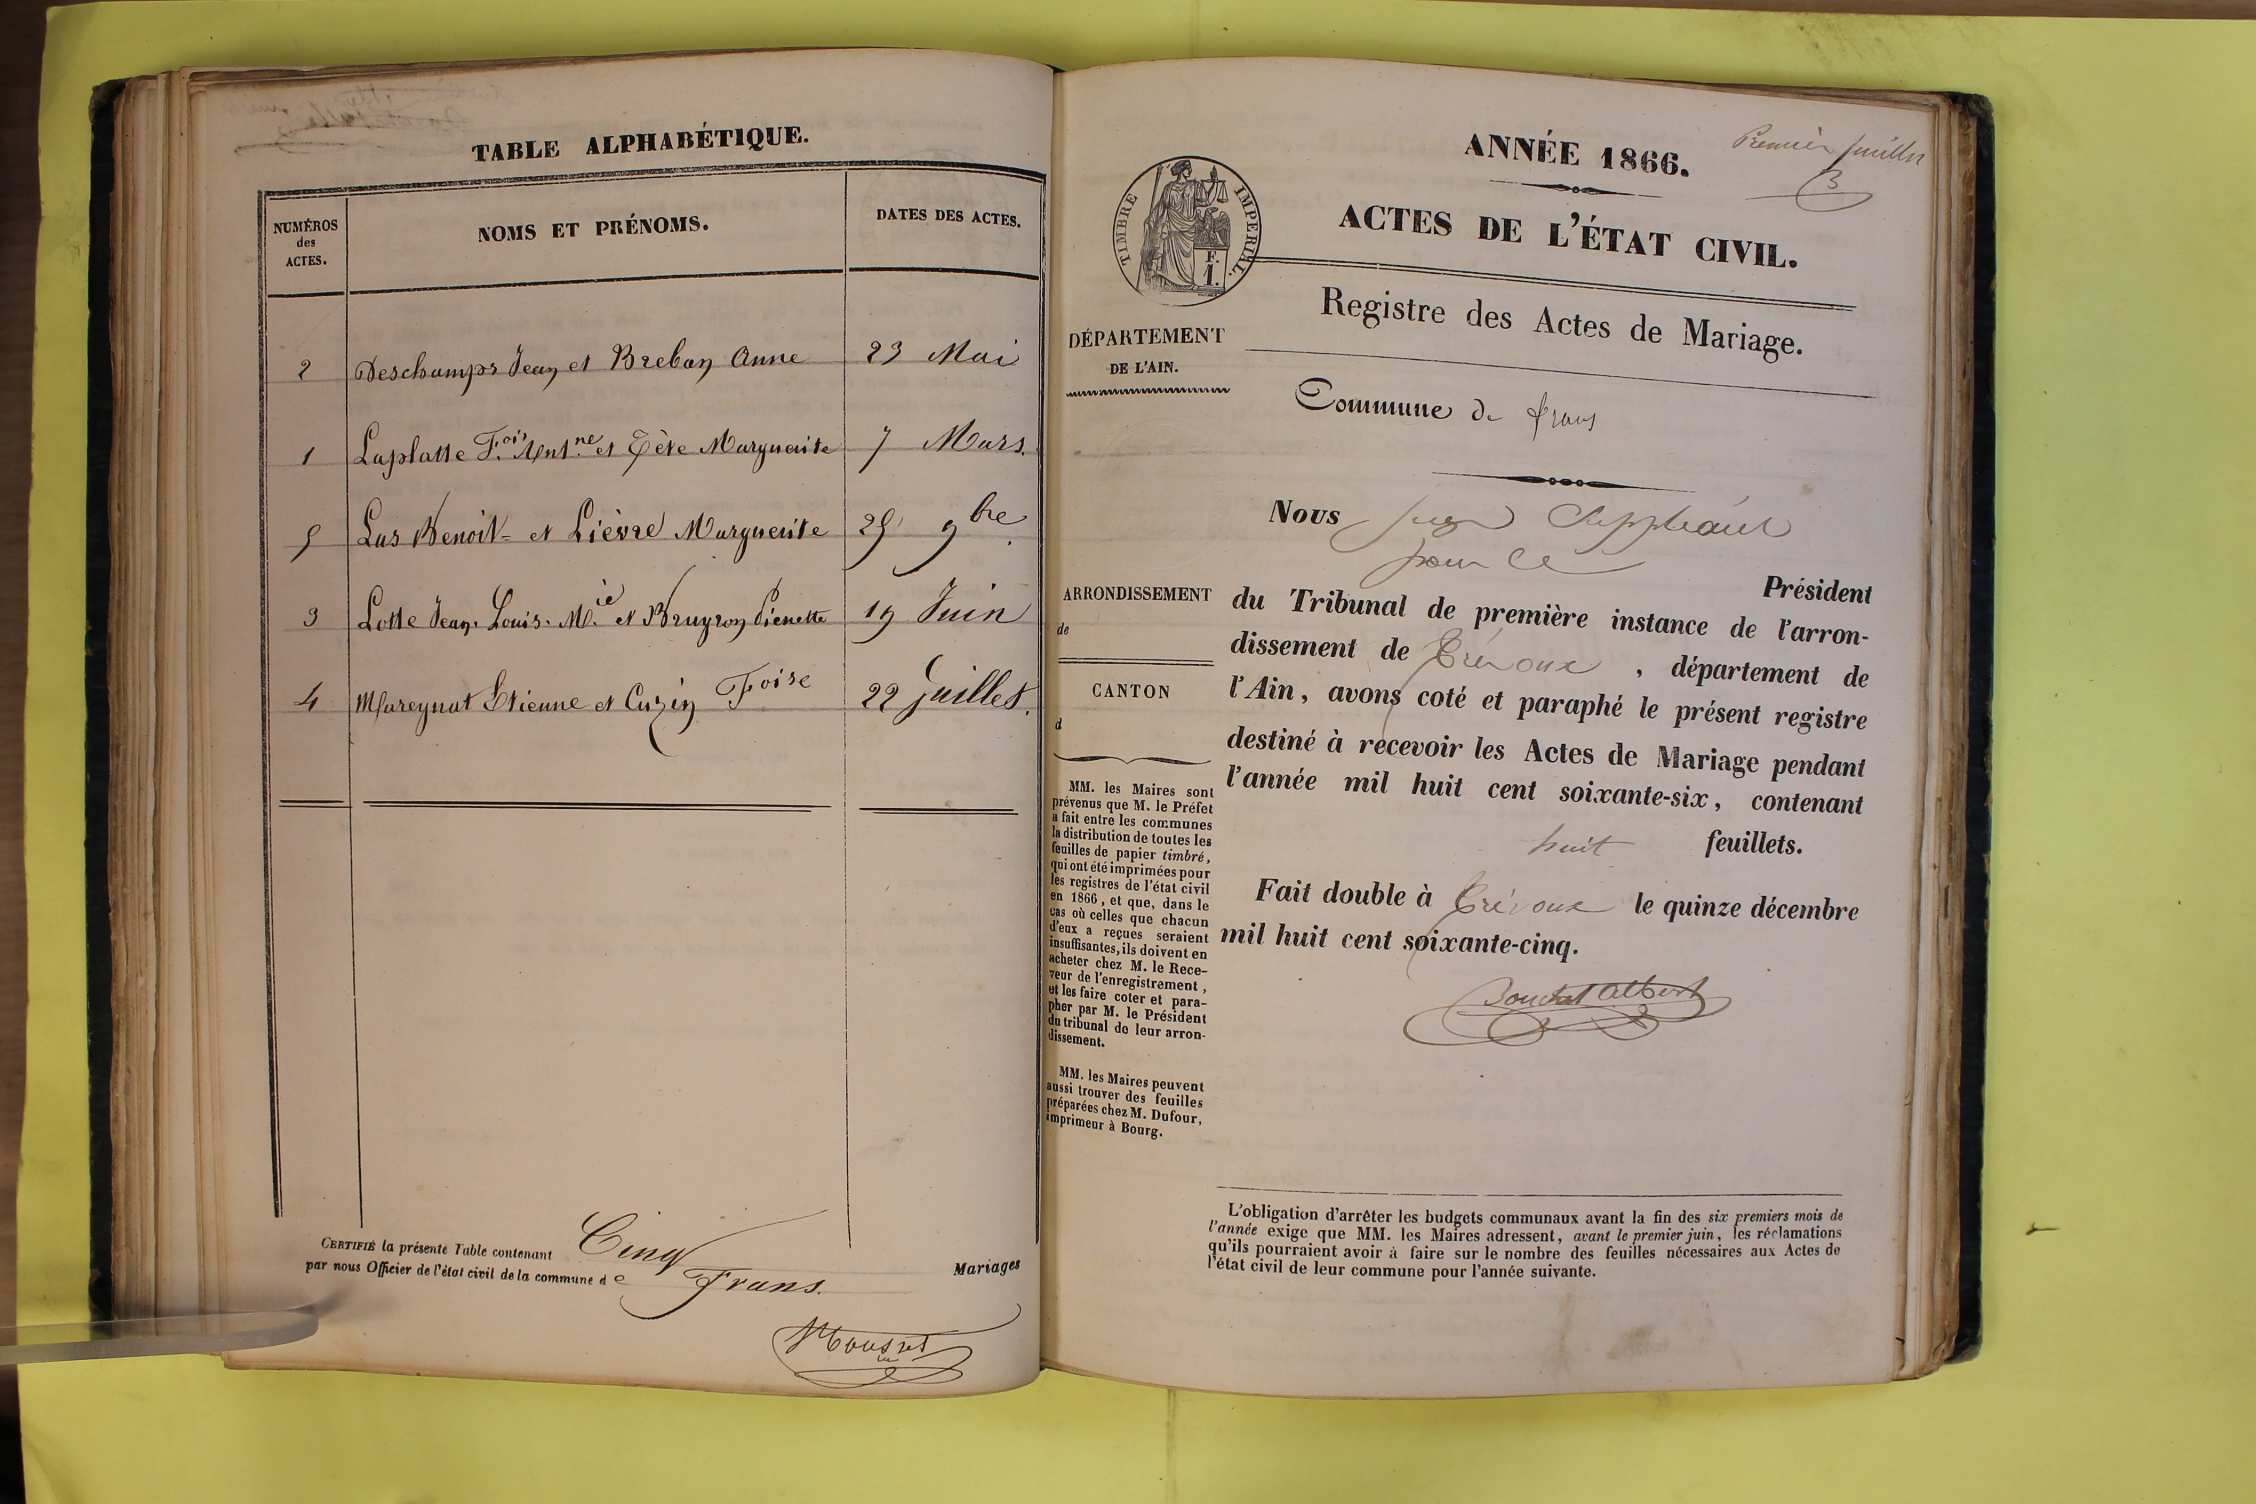 TABLE ALPHABÉTIQUE.
NUMÉROS
des
ACTES.
NOMS ET PRÉNOMS.
DATES DES ACTES.
2 Deschamps Jean et Breban Anne 23 Mai
1 Laplatte F.ois Ant.ne et Tète Marguerite 7 Mars.
5 Las Benoit et Lièvre Marguerite 25 9bre.
3 Lotte Jean. Louis. M.ie et Bruyron Pierrette 19 Juin
4 Mareynat Etienne et Cuzin Foise 22 Juillet.
CERTIFIÉ la présente Table contenant Cinq Mariages
par nous Officier de l'état civil de la commune de Frans.
Mousset
Premier feuillet
ANNÉE 1866.
ACTES DE L'ÉTAT CIVIL.
TIMBRE IMPERIAL.
F.
1.
Registre des Actes de Mariage.
DÉPARTEMENT
DE L'AIN.
Commune de frans
Nous juge Suppléant
pour le
Président
du Tribunal de première instance de l'arron-
dissement de Trévoux, département de
l'Ain, avons coté et paraphé le présent registre
destiné à recevoir les Actes de Mariage pendant
l'année mil huit cent soixante-six, contenant
huit feuillets.
Fait double à Trévoux le quinze décembre
mil huit cent soixante-cinq.
ARRONDISSEMENT
de
CANTON
d
MM. les Maires sont
prévenus que M. le Préfet
a fait entre les communes
la distribution de toutes les
feuilles de papier timbré,
qui ont été imprimées pour
les registres de l'état civil
en 1866, et que, dans le
cas où celles que chacun
d'eux a reçues seraient
insuffisantes, ils doivent en
acheter chez M. le Rece-
veur de l'enregistrement,
et les faire coter et para-
pher par M. le Président
du tribunal de leur arron-
dissement.
MM. les Maires peuvent
aussi trouver des feuilles
préparées chez M. Dufour,
imprimeur à Bourg.
L'obligation d'arrêter les budgets communaux avant la fin des six premiers mois de
l'année exige que MM. les Maires adressent, avant le premier juin, les réclamations
qu'ils pourraient avoir à faire sur le nombre des feuilles nécessaires aux Actes de
l'état civil de leur commune pour l'année suivante.